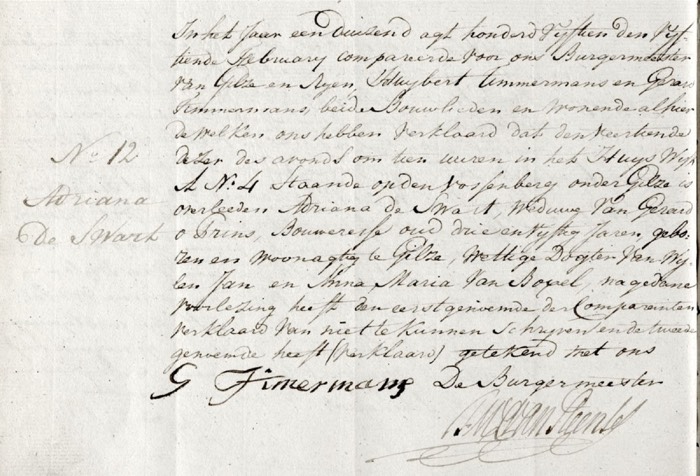 In het Jaar een Duisend agt honderd Vyftien den Vyf-
tiende February compareerde voor ons Burgemeester
van Gilze en Ryen, Huybert Timmermans en Gerard
Timmermans, beide Bouwlieden en wonende alhier
de welken ons hebben verklaard dat den veertiende
dezer des avonds om tien uuren in het Huys Wyk
A No: 4 Staande op den vossenberg onder Gilze is
overleeden Adriana de Swart, Weduwe van Gerard
Prins, Bouweresse oud drie en tystig Jaren, gebo-
ren en woonagtig te Gilze, Wettige Dogter van Wy-
len Jan en Anna Maria van Boxel, na gedane
voorlezing heeft den eerstgenoemde der Comparanten
verklaard van niet te kunnen Schryven en de tweede
genoemde heeft (verklaard) getekend met ons
G Timermans De Burgermeester
No: 12
Adriana
De Swart